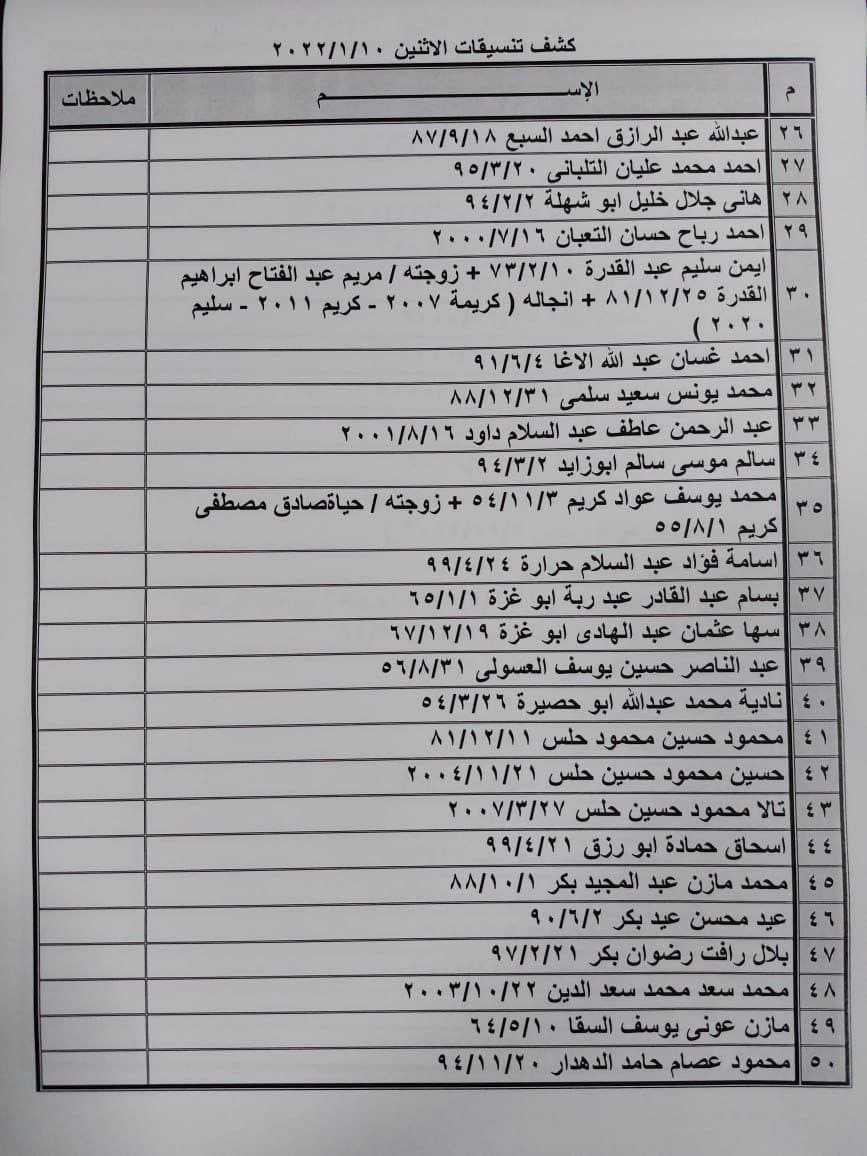 كشف تنسيقات الاثنين ٢٠٢٢/١/١٠
م الإســـــــــــــــم ملاحظات
٢٦ عبدالله عبد الرازق احمد السبع ٨٧/٩/١٨
٢٧ احمد محمد عليان التلبانى ٩٥/٣/٢٠
٢٨ هانى جلال خليل ابو شهلة ٩٤/٢/٢
٢٩ احمد رباح حسان التعبان ٢٠٠٠/٧/١٦
٣٠ ايمن سليم عبد القدرة ٧٣/٢/١٠ + زوجته / مريم عبد الفتاح ابراهيم
القدرة ٨١/١٢/٢٥ + انجاله ( كريمة ٢٠٠٧ - كريم ٢٠١١ - سليم
٢٠٢٠ )
٣١ احمد غسان عبد الله الاغا ٩١/٦/٤
٣٢ محمد يونس سعيد سلمى ٨٨/١٢/٣١
٣٣ عبد الرحمن عاطف عبد السلام داود ٢٠٠١/٨/١٦
٣٤ سالم موسى سالم ابوزايد ٩٤/٣/٢
٣٥ محمد يوسف عواد كريم ٥٤/١١/٣ + زوجته / حياةصادق مصطفى
كريم ٥٥/٨/١
٣٦ اسامة فؤاد عبد السلام حرارة ٩٩/٤/٢٤
٣٧ بسام عبد القادر عبد ربة ابو غزة ٦٥/١/١
٣٨ سها عثمان عبد الهادى ابو غزة ٦٧/١٢/١٩
٣٩ عبد الناصر حسين يوسف العسولى ٥٦/٨/٣١
٤٠ نادية محمد عبدالله ابو حصيرة ٥٤/٣/٢٦
٤١ محمود حسين محمود حلس ٨١/١٢/١١
٤٢ حسين محمود حسين حلس ٢٠٠٤/١١/٢١
٤٣ تالا محمود حسين حلس ٢٠٠٧/٣/٢٧
٤٤ اسحاق حمادة ابو رزق ٩٩/٤/٢١
٤٥ محمد مازن عبد المجيد بكر ٨٨/١٠/١
٤٦ عيد محسن عيد بكر ٩٠/٦/٢
٤٧ بلال رافت رضوان بكر ٩٧/٢/٢١
٤٨ محمد سعد محمد سعد الدين ٢٠٠٣/١٠/٢٢
٤٩ مازن عونى يوسف السقا ٦٤/٥/١٠
٥٠ محمود عصام حامد الدهدار ٩٤/١١/٢٠